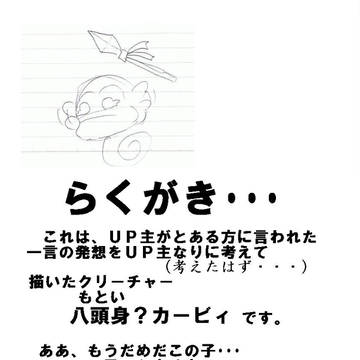 らくがき・・・
これは、ＵＰ主がとある方に言われた
一言の発想をＵＰ主なりに考えて
(考えたはず・・・)
描いたクリーチャー
もとい
八頭身？カービィ です。
ああ、もうだめだこの子・・・